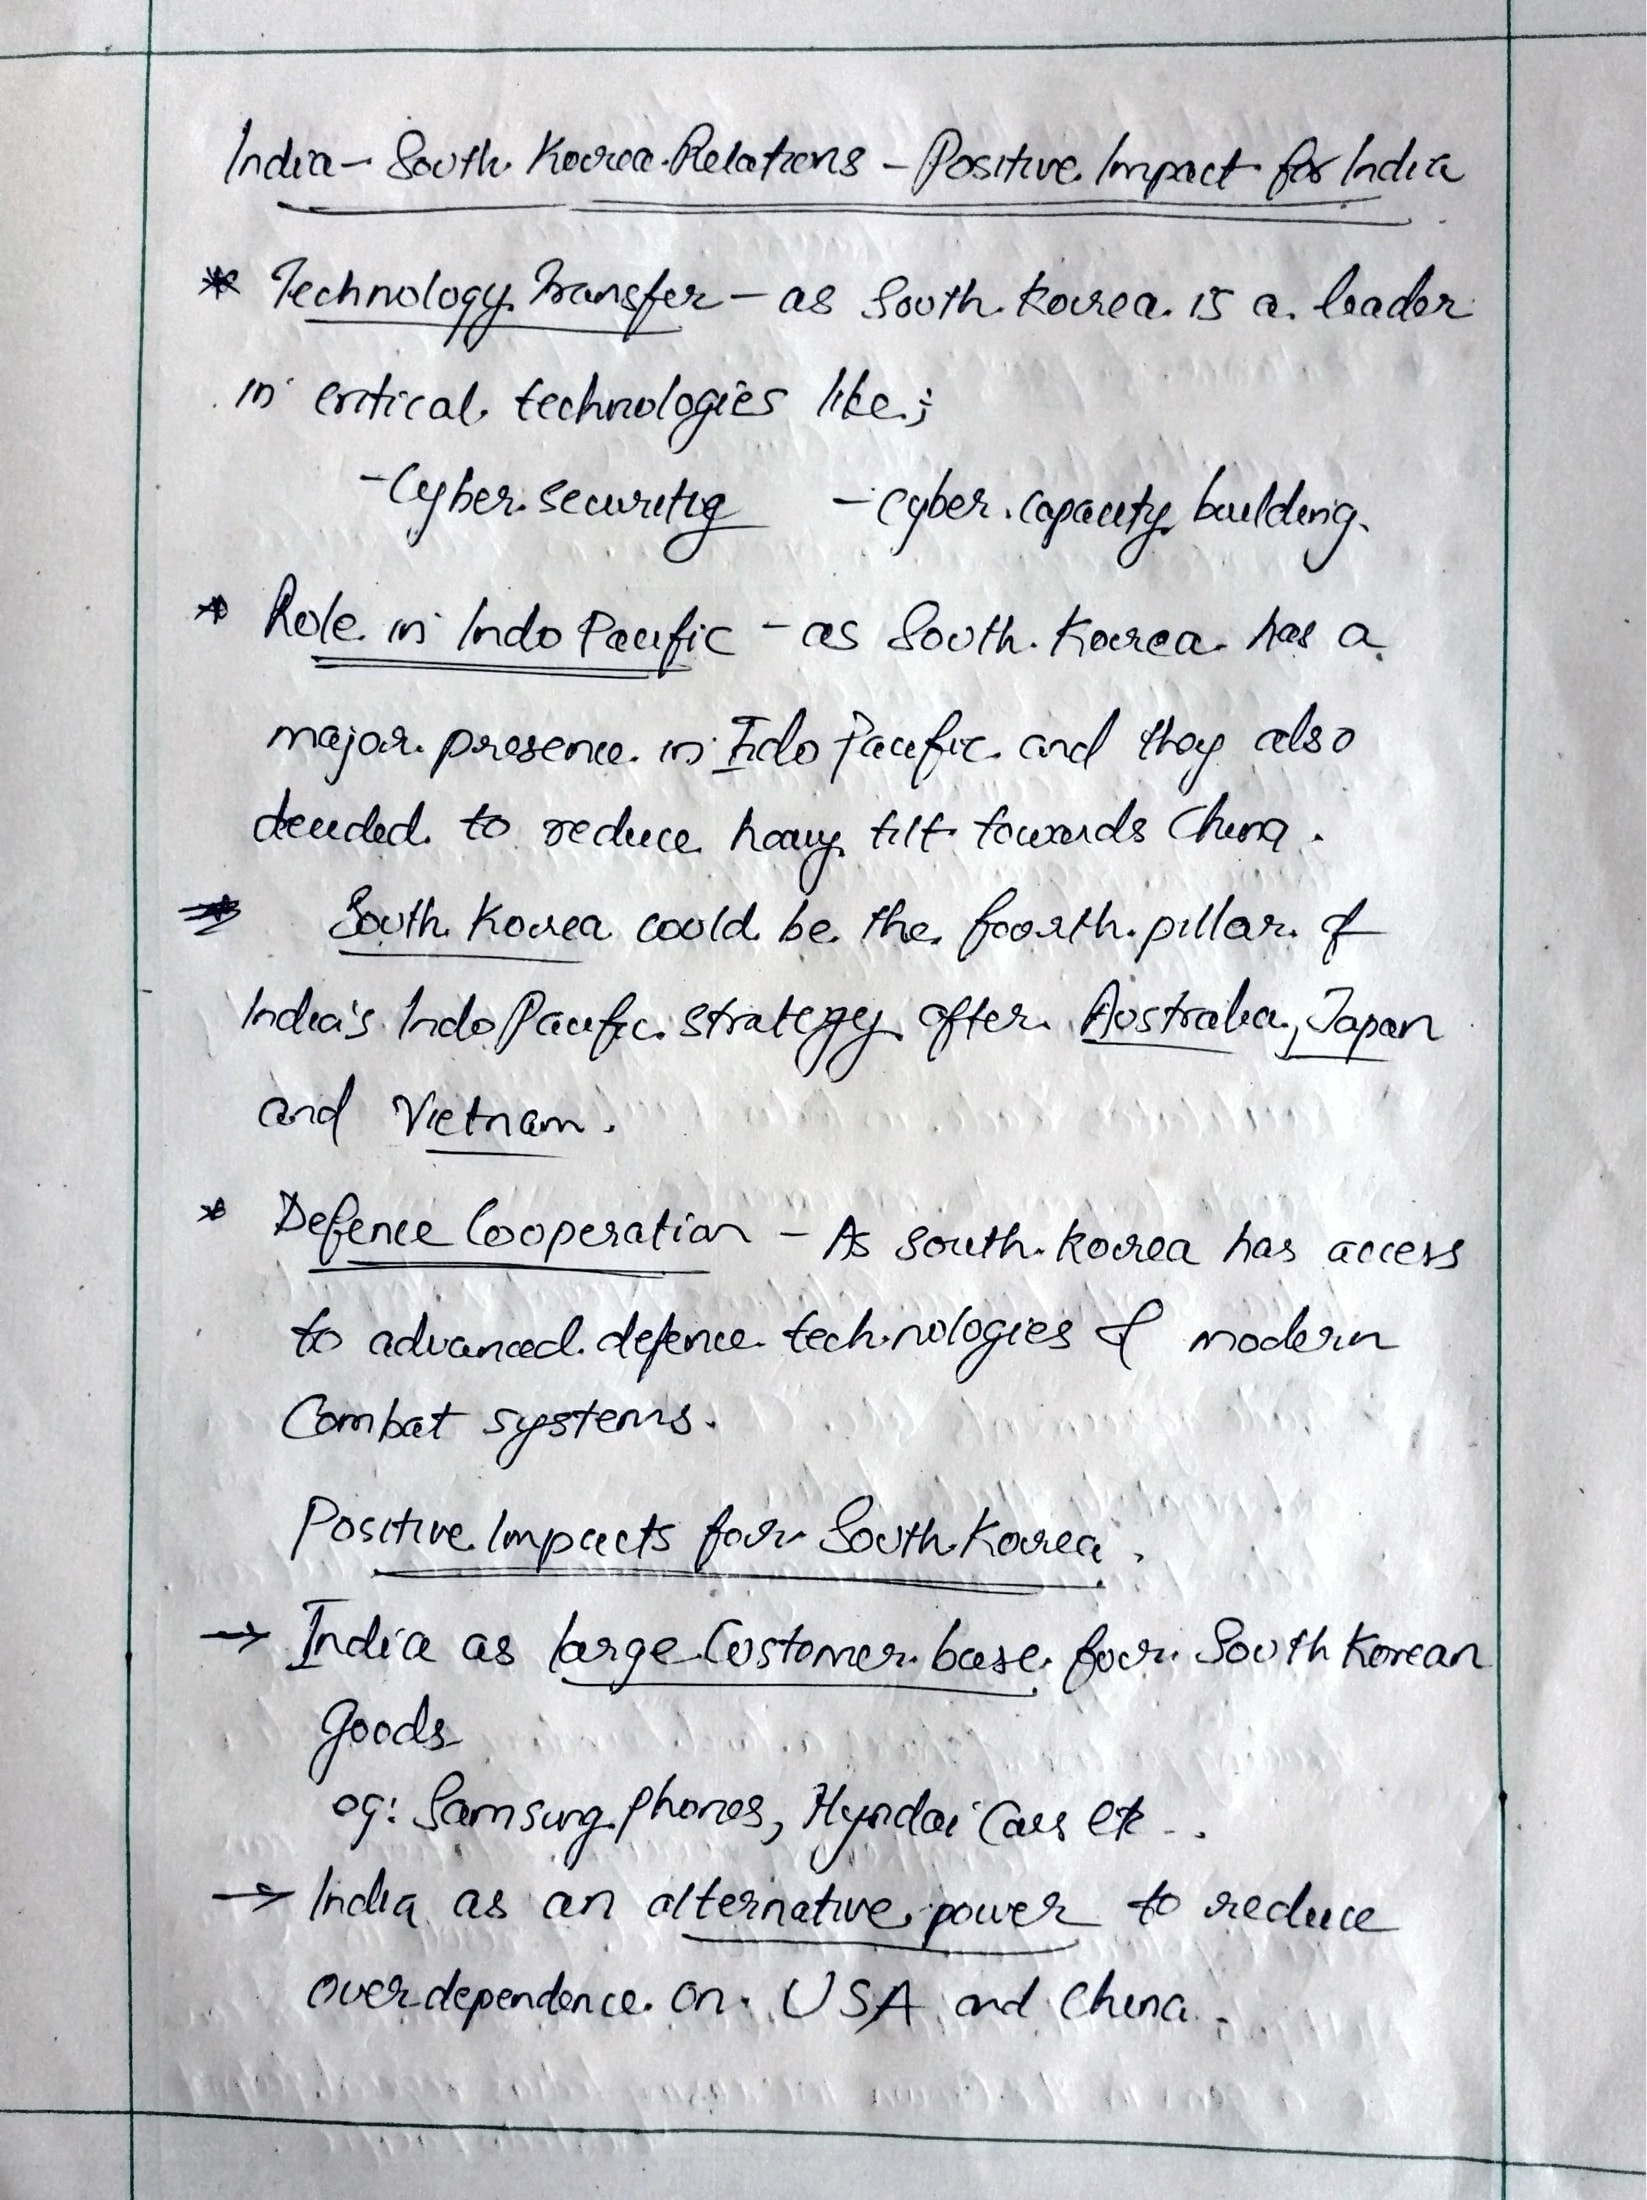 India - South Korea Relations - Positive Impact for India
* Technology Transfer - as South Korea is a leader
in critical technologies like;
- Cyber security - cyber capacity building.
* Role in Indo Pacific - as South Korea has a
major presence in Indo Pacific and they also
decided to reduce heavy tilt towards China.
* South Korea could be the fourth pillar of
India's Indo Pacific strategy after Australia, Japan
and Vietnam.
* Defence Cooperation - As south korea has access
to advanced defence technologies & modern
Combat systems.
Positive Impacts for South Korea.
→ India as large Customer base for South Korean
Goods
eg: Samsung phones, Hyndai Cars etc..
→ India as an alternative power to reduce
over dependence on USA and China.